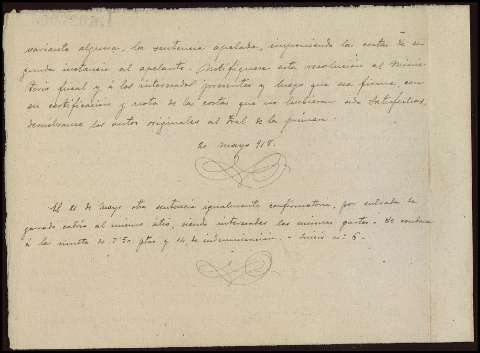 variante alguna, la sentencia apelada, imponiendo las costas de se-
gunda instancia al apelante. Notifíquese esta resolución al Minis-
terio fiscal y á los interesados presentes y luego que sea firme, con
su certificación y nota de las costas que no hubieran sido satisfechas,
devuélvanse los autos originales al Tral de la primera.
20 mayo 918.
El 21 de mayo otra sentencia igualmente confirmatoria, por entrada de
ganado cabrio al mismo sitio, siendo interesados las mismas partes. Se condena
á la multa de 750 ptas y 14 de indemnización. - Juicio nº 6 -